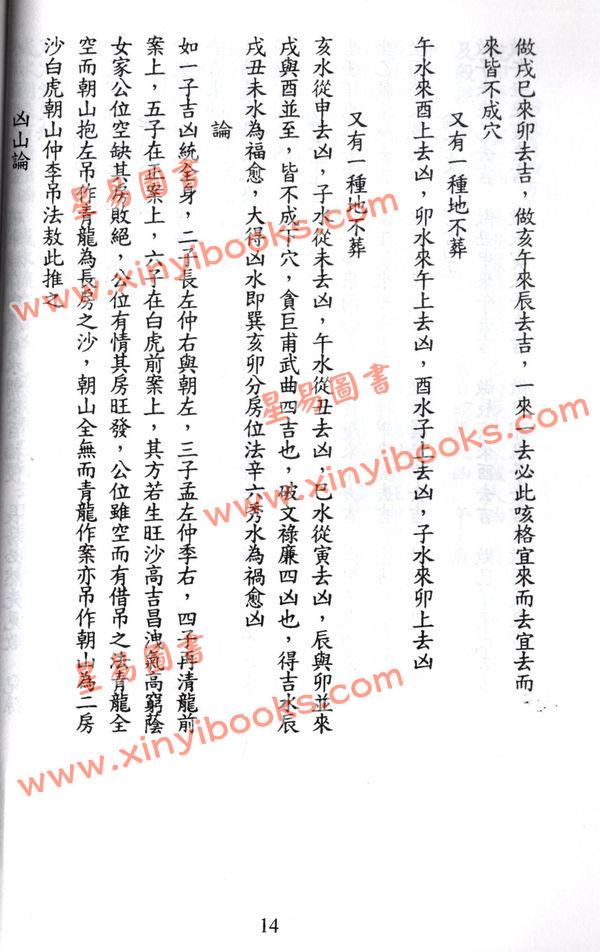 做戌巳來卯去吉，做亥午來辰去吉，一來一去必此咳格宜來而去宜去而
來皆不成穴
又有一種地不葬
午水來酉上去凶，卯水來午上去凶，酉水子上去凶，子水來卯上去凶
又有一種地不葬
亥水從申去凶，子水從未去凶，午水從丑去凶，巳水從寅去凶，辰與卯並來
戌與酉並至，皆不成下穴，貪巨甫武曲四吉也，破文祿廉四凶也，得吉水辰
戌丑未水為福愈，大得凶水即巽亥卯分房位法辛六秀水為禍愈凶
論
如一子吉凶統全身，二子長左仲右與朝左，三子孟左仲李右，四子再清龍前
案上，五子在正案上，六子在白虎前案上，其方若生旺沙高吉昌洩氣高窮蔭
女家公位空缺其房敗絕，公位有情其房旺發，公位雖空而有借吊之法青龍全
空而朝山抱左吊作青龍為長房之沙，朝山全無而青龍作案亦吊作朝山為二房
沙白虎朝山仲李吊法敖此推之
凶山論
14
星易圖書
www.xinyibooks.com
星易圖書
www.xinyibooks.com
星易圖書
www.xinyibooks.com